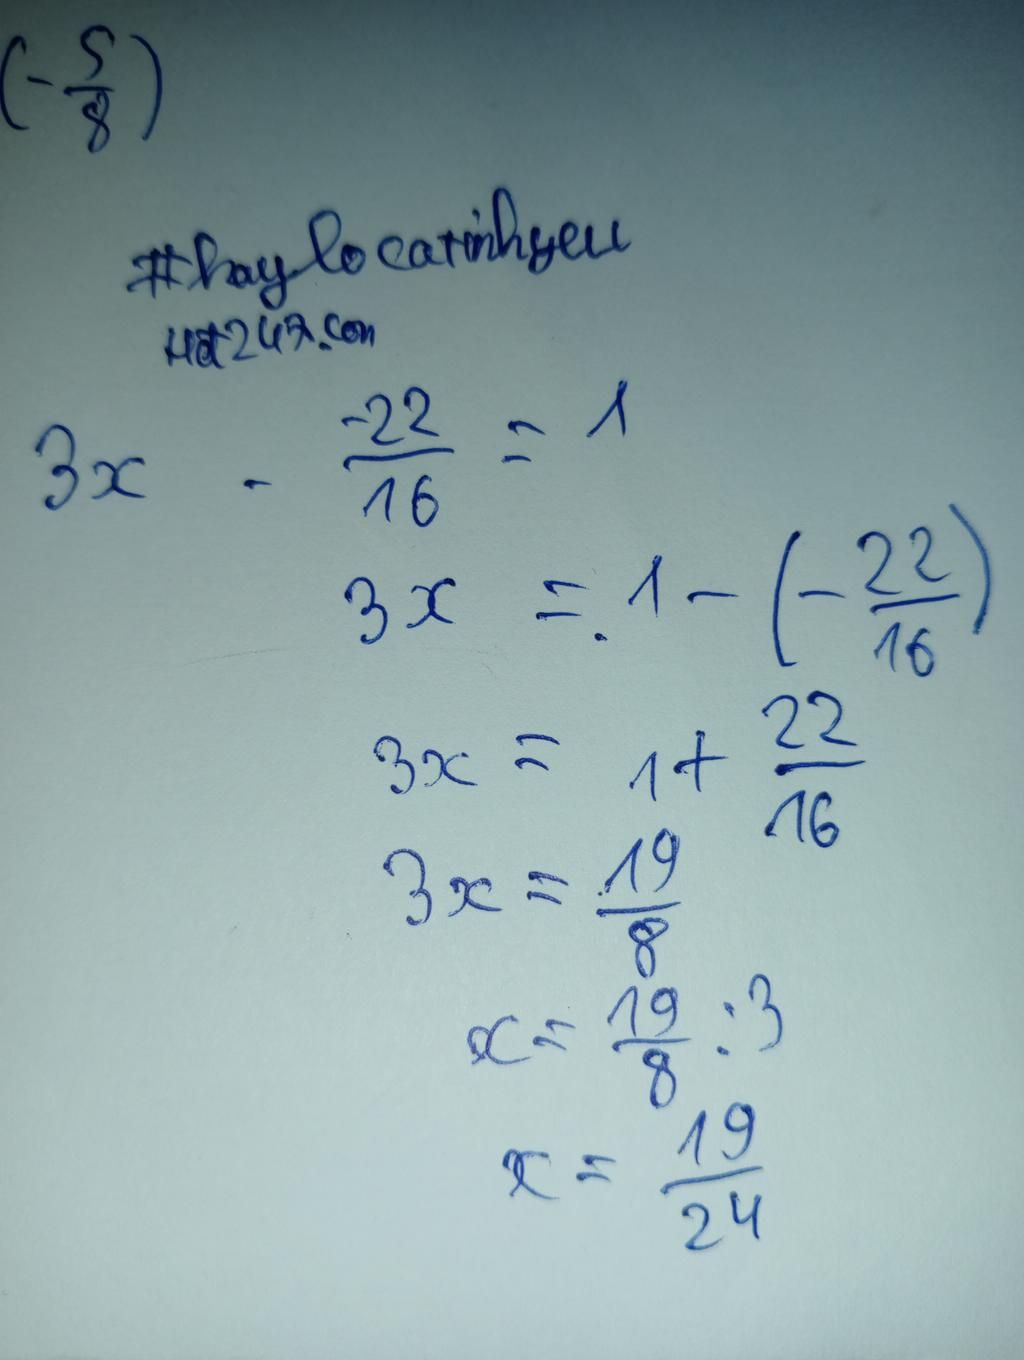 (-5/8)
#haylocatinhyeu
Hd247.com
3x - -22/16 = 1
3x = 1 - (-22/16)
3x = 1 + 22/16
3x = 19/8
x = 19/8 : 3
x = 19/24